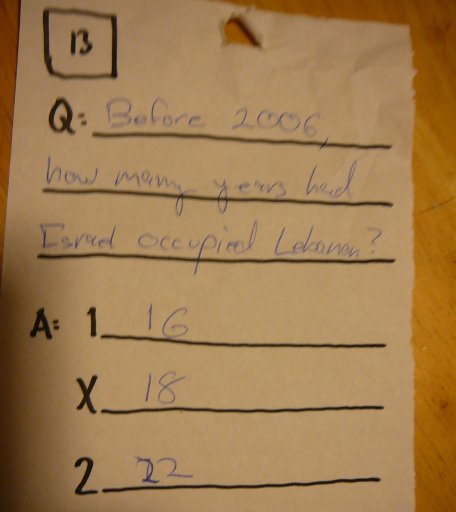 13
Q: Before 2006,
how many years had
Israel occupied Lebanon?
A: 1 16
X 18
2 22